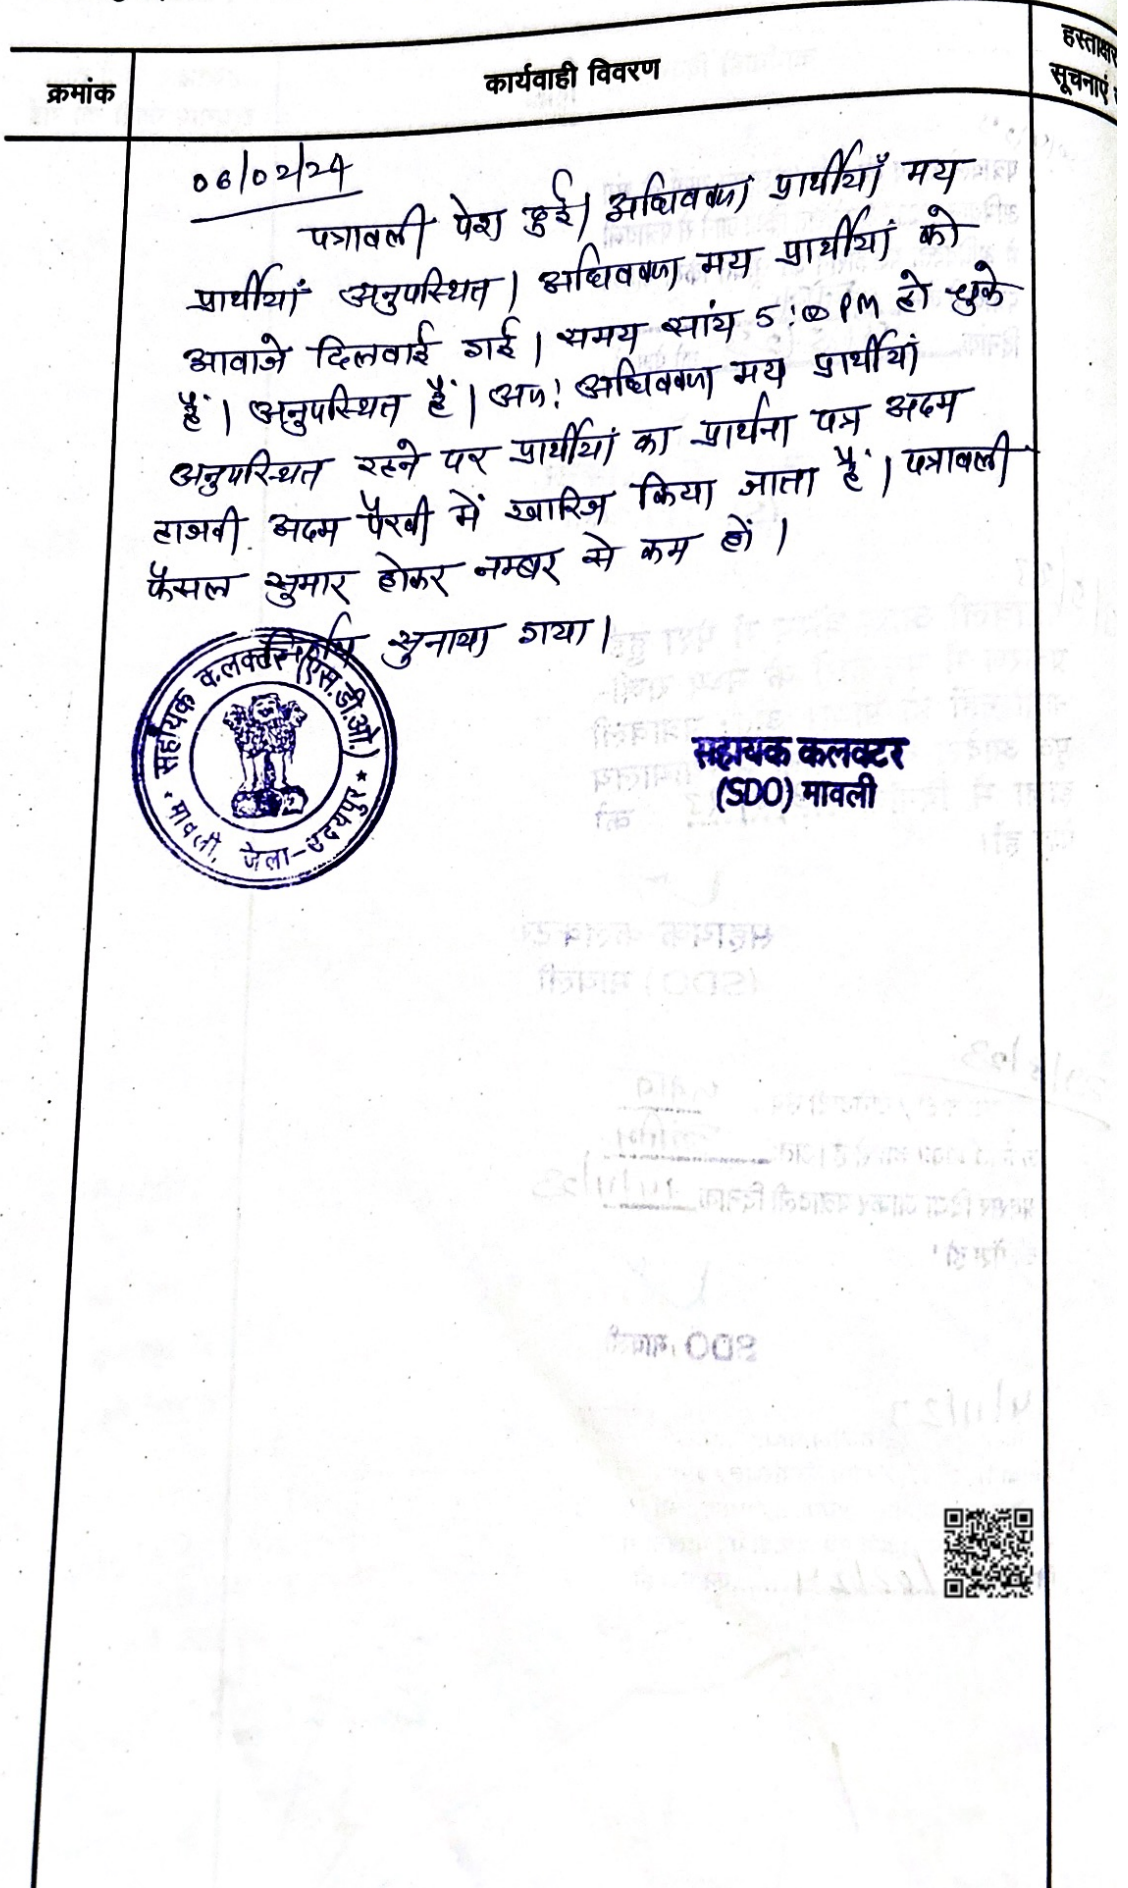 क्रमांक
कार्यवाही विवरण
हस्ताक्षर
सूचनाएं
06/02/24
पत्रावली पेश हुई। अधिवक्ता प्रार्थीयाँ मय
प्रार्थीयाँ अनुपस्थित। अधिवक्ता मय प्रार्थीयां को
आवाजे दिलवाई गई। समय सांय 5:00 PM हो चुके
हैं। अनुपस्थित हैं। अतः अधिवक्ता मय प्रार्थीयां
अनुपस्थित रहने पर प्रार्थीयां का प्रार्थना पत्र अदम
हाजरी अदम पैरवी में खारिज किया जाता हैं। पत्रावली
फैसल सुमार होकर नम्बर से कम हों।
निर्णय सुनाया गया।
सहायक कलक्टर (एस.डी.ओ.)
मावली, जिला-उदयपुर
सहायक कलक्टर
(SDO) मावली